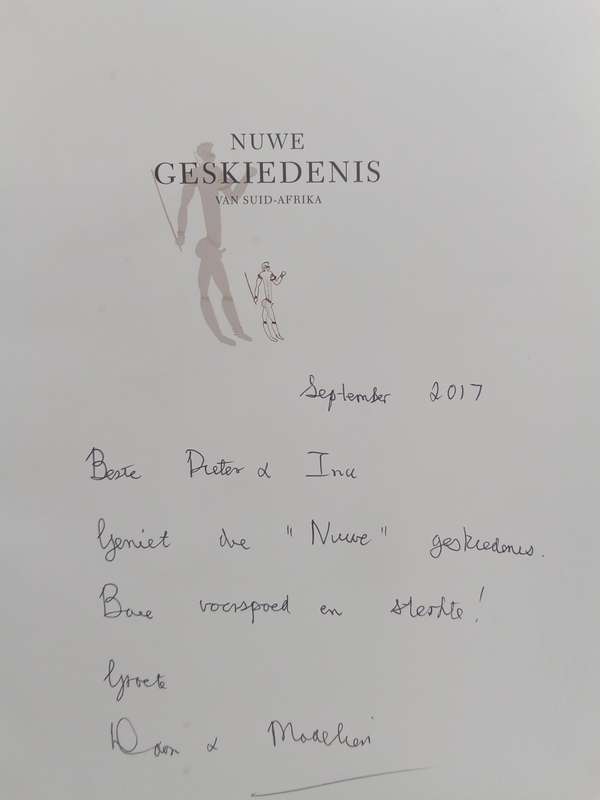 NUWE
GESKIEDENIS
VAN SUID-AFRIKA
September 2017
Beste Pieter & Ina
Geniet die "Nuwe" geskiedenis.
Baie voorspoed en sterkte!
Groete
&